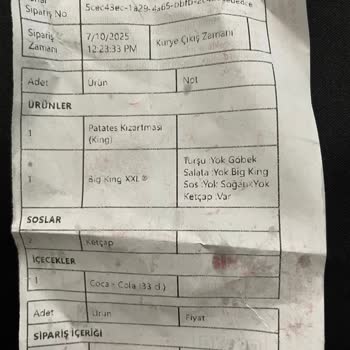 Sipariş No
Sipariş Zamanı 7/10/2025 12:23:33 PM Kurye Çıkış Zamanı
Adet Ürün Not
ÜRÜNLER
1 Patates Kızartması (King)
* 1 Big King XXL ® Turşu :Yok Göbek
Salata :Yok Big King
Sos :Yok Soğan :Yok
Ketçap :Var
SOSLAR
2 Ketçap
İÇECEKLER
1 Coca - Cola (33 cl.)
Adet Ürün Fiyat
SİPARİŞ İÇERİĞİ